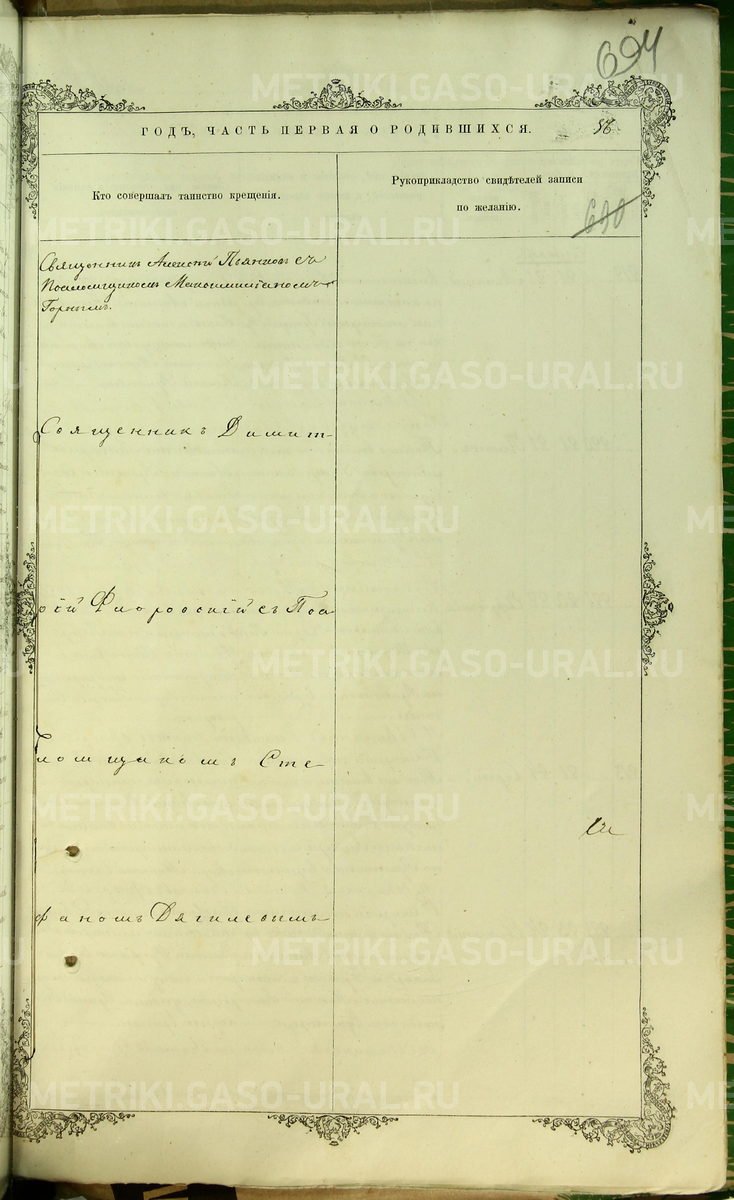 694
METRIKI.GASO-URAL.RU
ГОДЪ, ЧАСТЬ ПЕРВАЯ О РОДИВШИХСЯ.
Кто совершалъ таинство крещенія.
Рукоприкладство свидѣтелей записи
по желанію.
690
Священникъ Алексій Пьянковъ съ
Псаломщикомъ
Горнымъ.
METRIKI.GASO-URAL.RU
Священникъ Димит-
METRIKI.GASO-URAL.RU
рій Флоровскій съ Пса
METRIKI.GASO-URAL.RU
ломщикомъ Сте-
METRIKI.GASO-URAL.RU
фаномъ Дягилевымъ
METRIKI.GASO-URAL.RU
METRIKI.GASO-URAL.RU